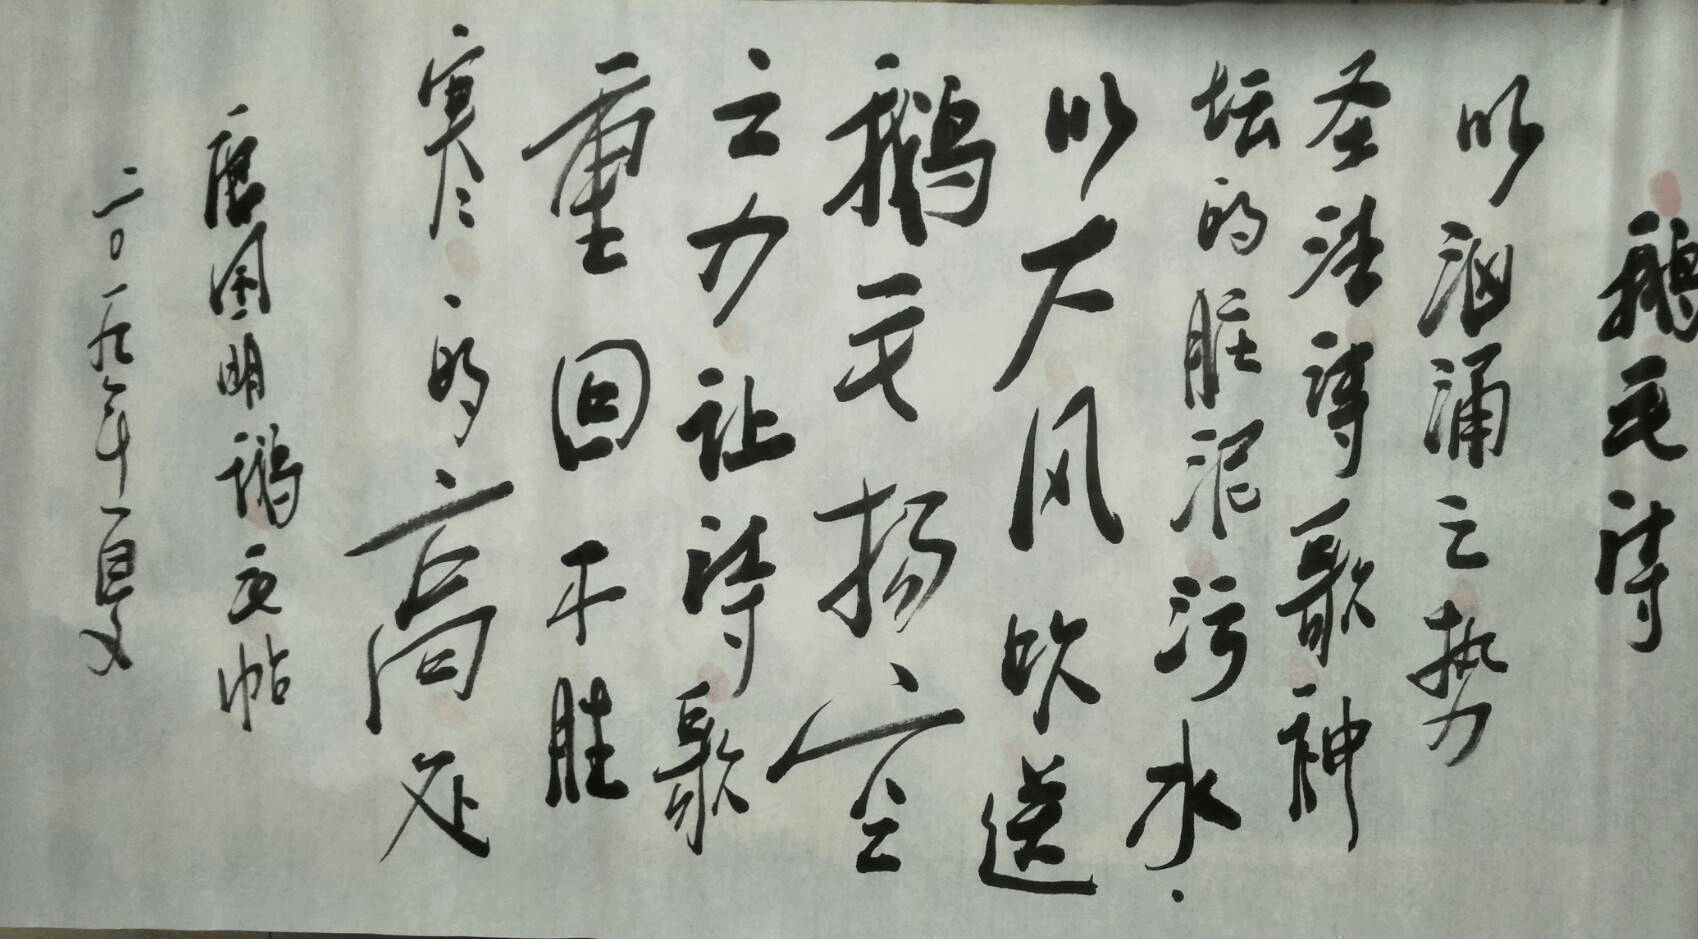 鹅毛诗
以汹涌之势
圣洁诗歌神
坛的脏泥污水.
以大风吹送
鹅毛扬空
之力让诗歌
重回不胜
寒的高处
唐国明鹅毛帖
二〇一九年夏